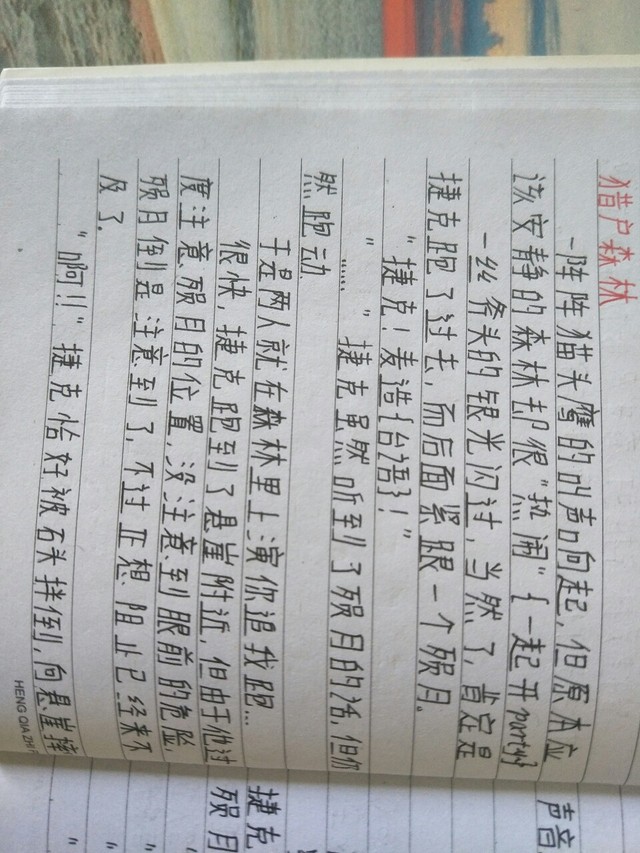 猎户森林
一阵阵猫头鹰的叫声响起，但原本应
该安静的森林却很"热闹"{一起开party}
一丝条头的银光闪过，当然了，肯定是
捷克跑了过去，而后面紧跟一个殒月。
"捷克！麦造{台语}！"
"……"捷克虽然听到了殒月的话，但仍
然跑动
于是两人就在森林里上演你追我跑…
很快，捷克跑到了悬崖附近，但由于他过
度注意殒月的位置，没注意到眼前的危险，
殒月倒是注意到了，不过正想阻止已经来不
及了。
"啊!!"捷克恰好被石头拌倒，向悬崖摔
HENG QIA ZHI
声音
捷克
殒月